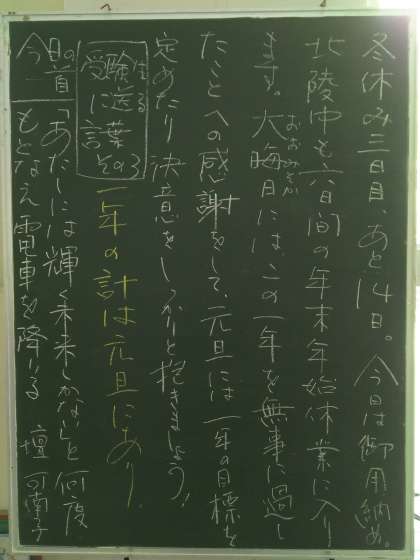 冬休み三日目、あと14日。今日は御用納め。
北陵中も六日間の年末年始休業に入り
ます。大晦日には、この一年を無事に過し
おおみそか
たことへの感謝をして、元旦には一年の目標を
定めたり決意をしっかりと抱きましょう!
受験生
に送る
言葉
その3
一年の計は元旦にあり
今日の一首
「あたしには輝く未来しかない」と何度
もとなえ電車を降りる 壇 可南子